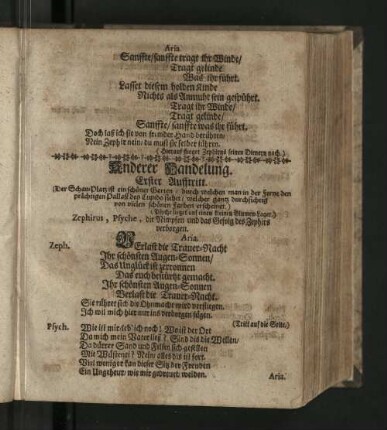 Aria
Sanffte/ sanffte tragt ihr Winde/
Tragt gelinde
Was ihr führt.
Lasset diesem holden Kinde
Nichts als Anmuht sein gespührt.
Tragt ihr Winde/
Tragt gelinde/
Sanffte/ sanffte was ihr führt.
Doch laß ich sie von fremder Hand berühren/
Nein Zephir nein/ du must sie selber führen.
(Hierauf singet Zephirus seinen Dienern nach.)
Anderer Handelung.
Erster Aufftritt.
(Der Schau-Platz ist ein schöner Garten/ durch welchen man in der ferne den
prächtigen Pallast des Cupido siehet/ welcher gantz durchsichtig
von vielen schönen Farben erscheinet.)
(Psyche lieget auf einem kleinen Blumen Lager.)
Zephirus, Psyche, die Nimpfen und das Gefolg des Zephirs
verborgen.
Aria.
Zeph. Verlast die Trauer-Nacht
Ihr schönsten Augen-Sonnen/
Das Unglück ist zerronnen
Das euch bestürtzt gemacht.
Ihr schönsten Augen-Sonnen
Verlast die Trauer-Nacht.
Sie rühret sich die Ohnmacht wird verfliegen.
Ich will mich hier nur ins verborgen fügen.
(Tritt auf die Seite.)
Psych. Wie ist mir leb' ich noch? Wo ist der Ort
Da mich mein Vater ließ? Sind dis die Wellen/
Da dürrer Sand und Felsen sich gesellen
Wie Wüstenei? Nein alles dis ist fort.
Viel weniger kan dieser Sitz der Freuden
Ein Ungeheur, wie mir gedreuet, weiden.
Aria.